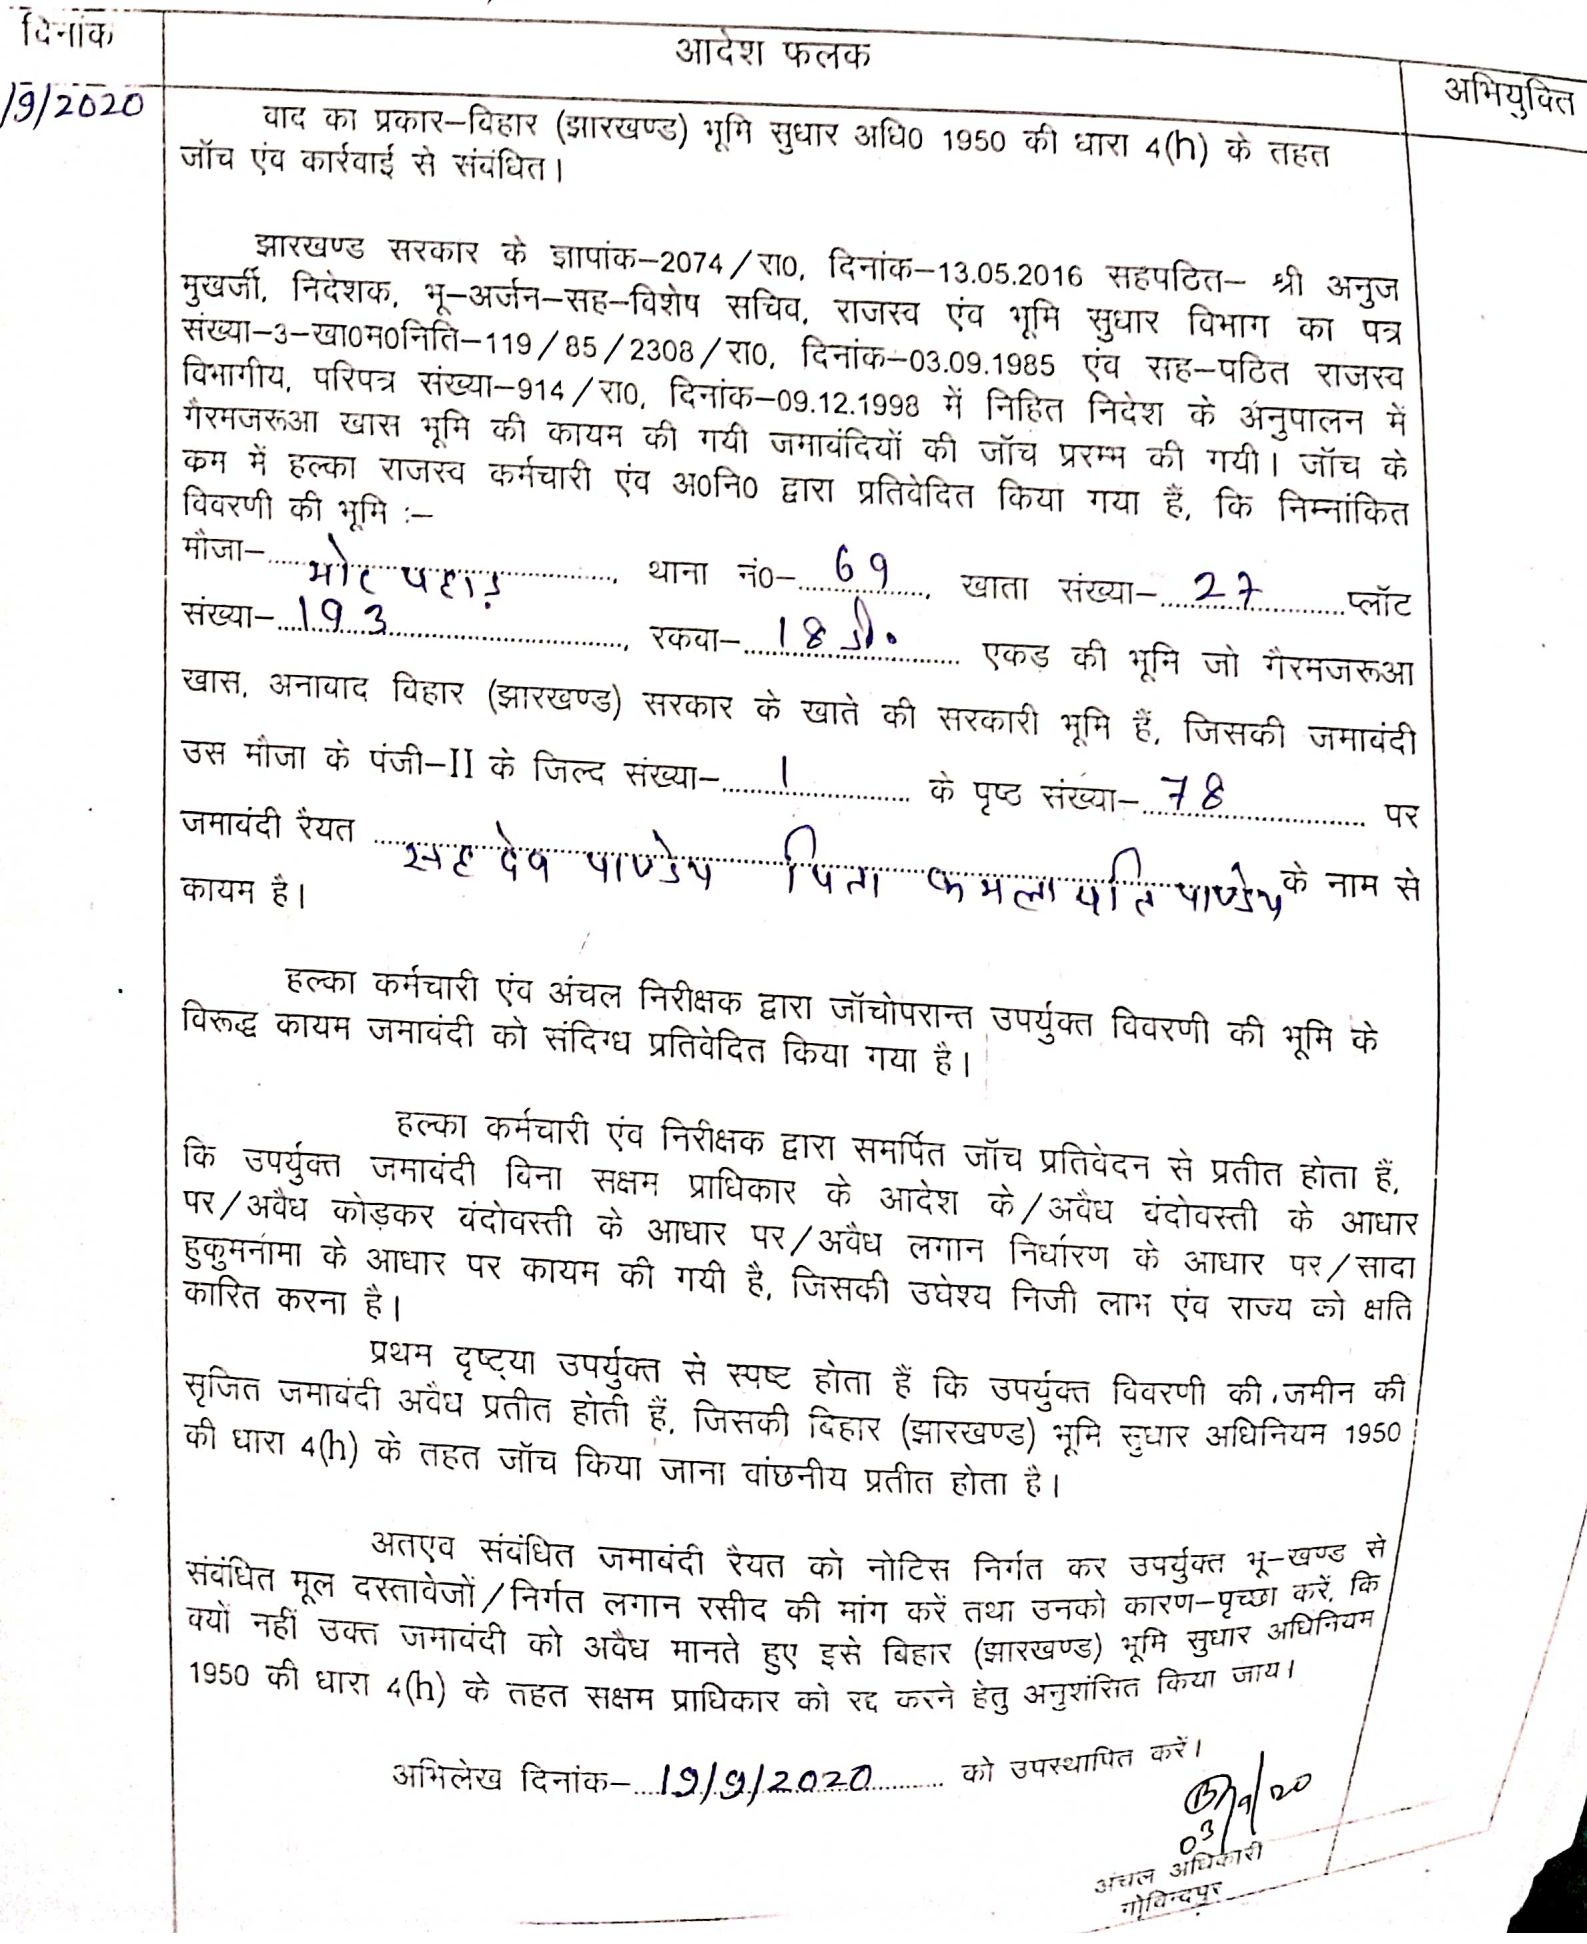 दिनांक
आदेश फलक
अभियुक्ति
/9/2020
वाद का प्रकार–विहार (झारखण्ड) भूमि सुधार अधि0 1950 की धारा 4(h) के तहत
जॉच एंव कार्रवाई से संबंधित।
झारखण्ड सरकार के ज्ञापांक–2074/रा0, दिनांक–13.05.2016 सहपठित– श्री अनुज
मुखर्जी, निदेशक, भू–अर्जन–सह–विशेष सचिव, राजस्व एंव भूमि सुधार विभाग का पत्र
संख्या–3–खा0म0निति–119/85/2308/रा0, दिनांक–03.09.1985 एंव सह–पठित राजस्व
विभागीय, परिपत्र संख्या–914/रा0, दिनांक–09.12.1998 में निहित निदेश के अनुपालन में
गैरमजरूआ खास भूमि की कायम की गयी जमावंदियों की जॉच प्ररम्भ की गयी। जॉच के
कम में हल्का राजस्व कर्मचारी एंव अ0नि0 द्वारा प्रतिवेदित किया गया हैं, कि निम्नांकित
विवरणी की भूमि :–
मौजा–मोट पहाड़, थाना नं0–69, खाता संख्या–27 प्लॉट
संख्या–193, रकवा–18 डी० एकड़ की भूमि जो गैरमजरूआ
खास, अनावाद विहार (झारखण्ड) सरकार के खाते की सरकारी भूमि हैं, जिसकी जमाबंदी
उस मौजा के पंजी–II के जिल्द संख्या–1 के पृष्ठ संख्या–78 पर
जमावंदी रैयत सहदेव पाण्डेय पिता कमलापति पाण्डेय के नाम से
कायम है।
हल्का कर्मचारी एंव अंचल निरीक्षक द्वारा जॉचोपरान्त उपर्युक्त विवरणी की भूमि के
विरूद्ध कायम जमावंदी को संदिग्ध प्रतिवेदित किया गया है।
हल्का कर्मचारी एंव निरीक्षक द्वारा समर्पित जॉच प्रतिवेदन से प्रतीत होता हैं,
कि उपर्युक्त जमावंदी विना सक्षम प्राधिकार के आदेश के/अवैध वंदोवस्ती के आधार
पर/अवैध कोड़कर वंदोवस्ती के आधार पर/अवैध लगान निर्धारण के आधार पर/सादा
हुकुमनामा के आधार पर कायम की गयी है, जिसकी उघेश्य निजी लाभ एंव राज्य को क्षति
कारित करना है।
प्रथम दृष्ट्या उपर्युक्त से स्पष्ट होता हैं कि उपर्युक्त विवरणी की जमीन की
सृजित जमाबंदी अवैध प्रतीत होती हैं, जिसकी विहार (झारखण्ड) भूमि सुधार अधिनियम 1950
की धारा 4(h) के तहत जॉच किया जाना वांछनीय प्रतीत होता है।
अतएव संबंधित जमाबंदी रैयत को नोटिस निर्गत कर उपर्युक्त भू–खण्ड से
संबंधित मूल दस्तावेजों/निर्गत लगान रसीद की मांग करें तथा उनको कारण–पृच्छा करें, कि
क्यों नहीं उक्त जमावंदी को अवैध मानते हुए इसे बिहार (झारखण्ड) भूमि सुधार अधिनियम
1950 की धारा 4(h) के तहत सक्षम प्राधिकार को रद्द करने हेतु अनुशंसित किया जाय।
अभिलेख दिनांक–19/9/2020 को उपस्थापित करें।
03/9/20
अंचल अधिकारी
गोविन्दपुर